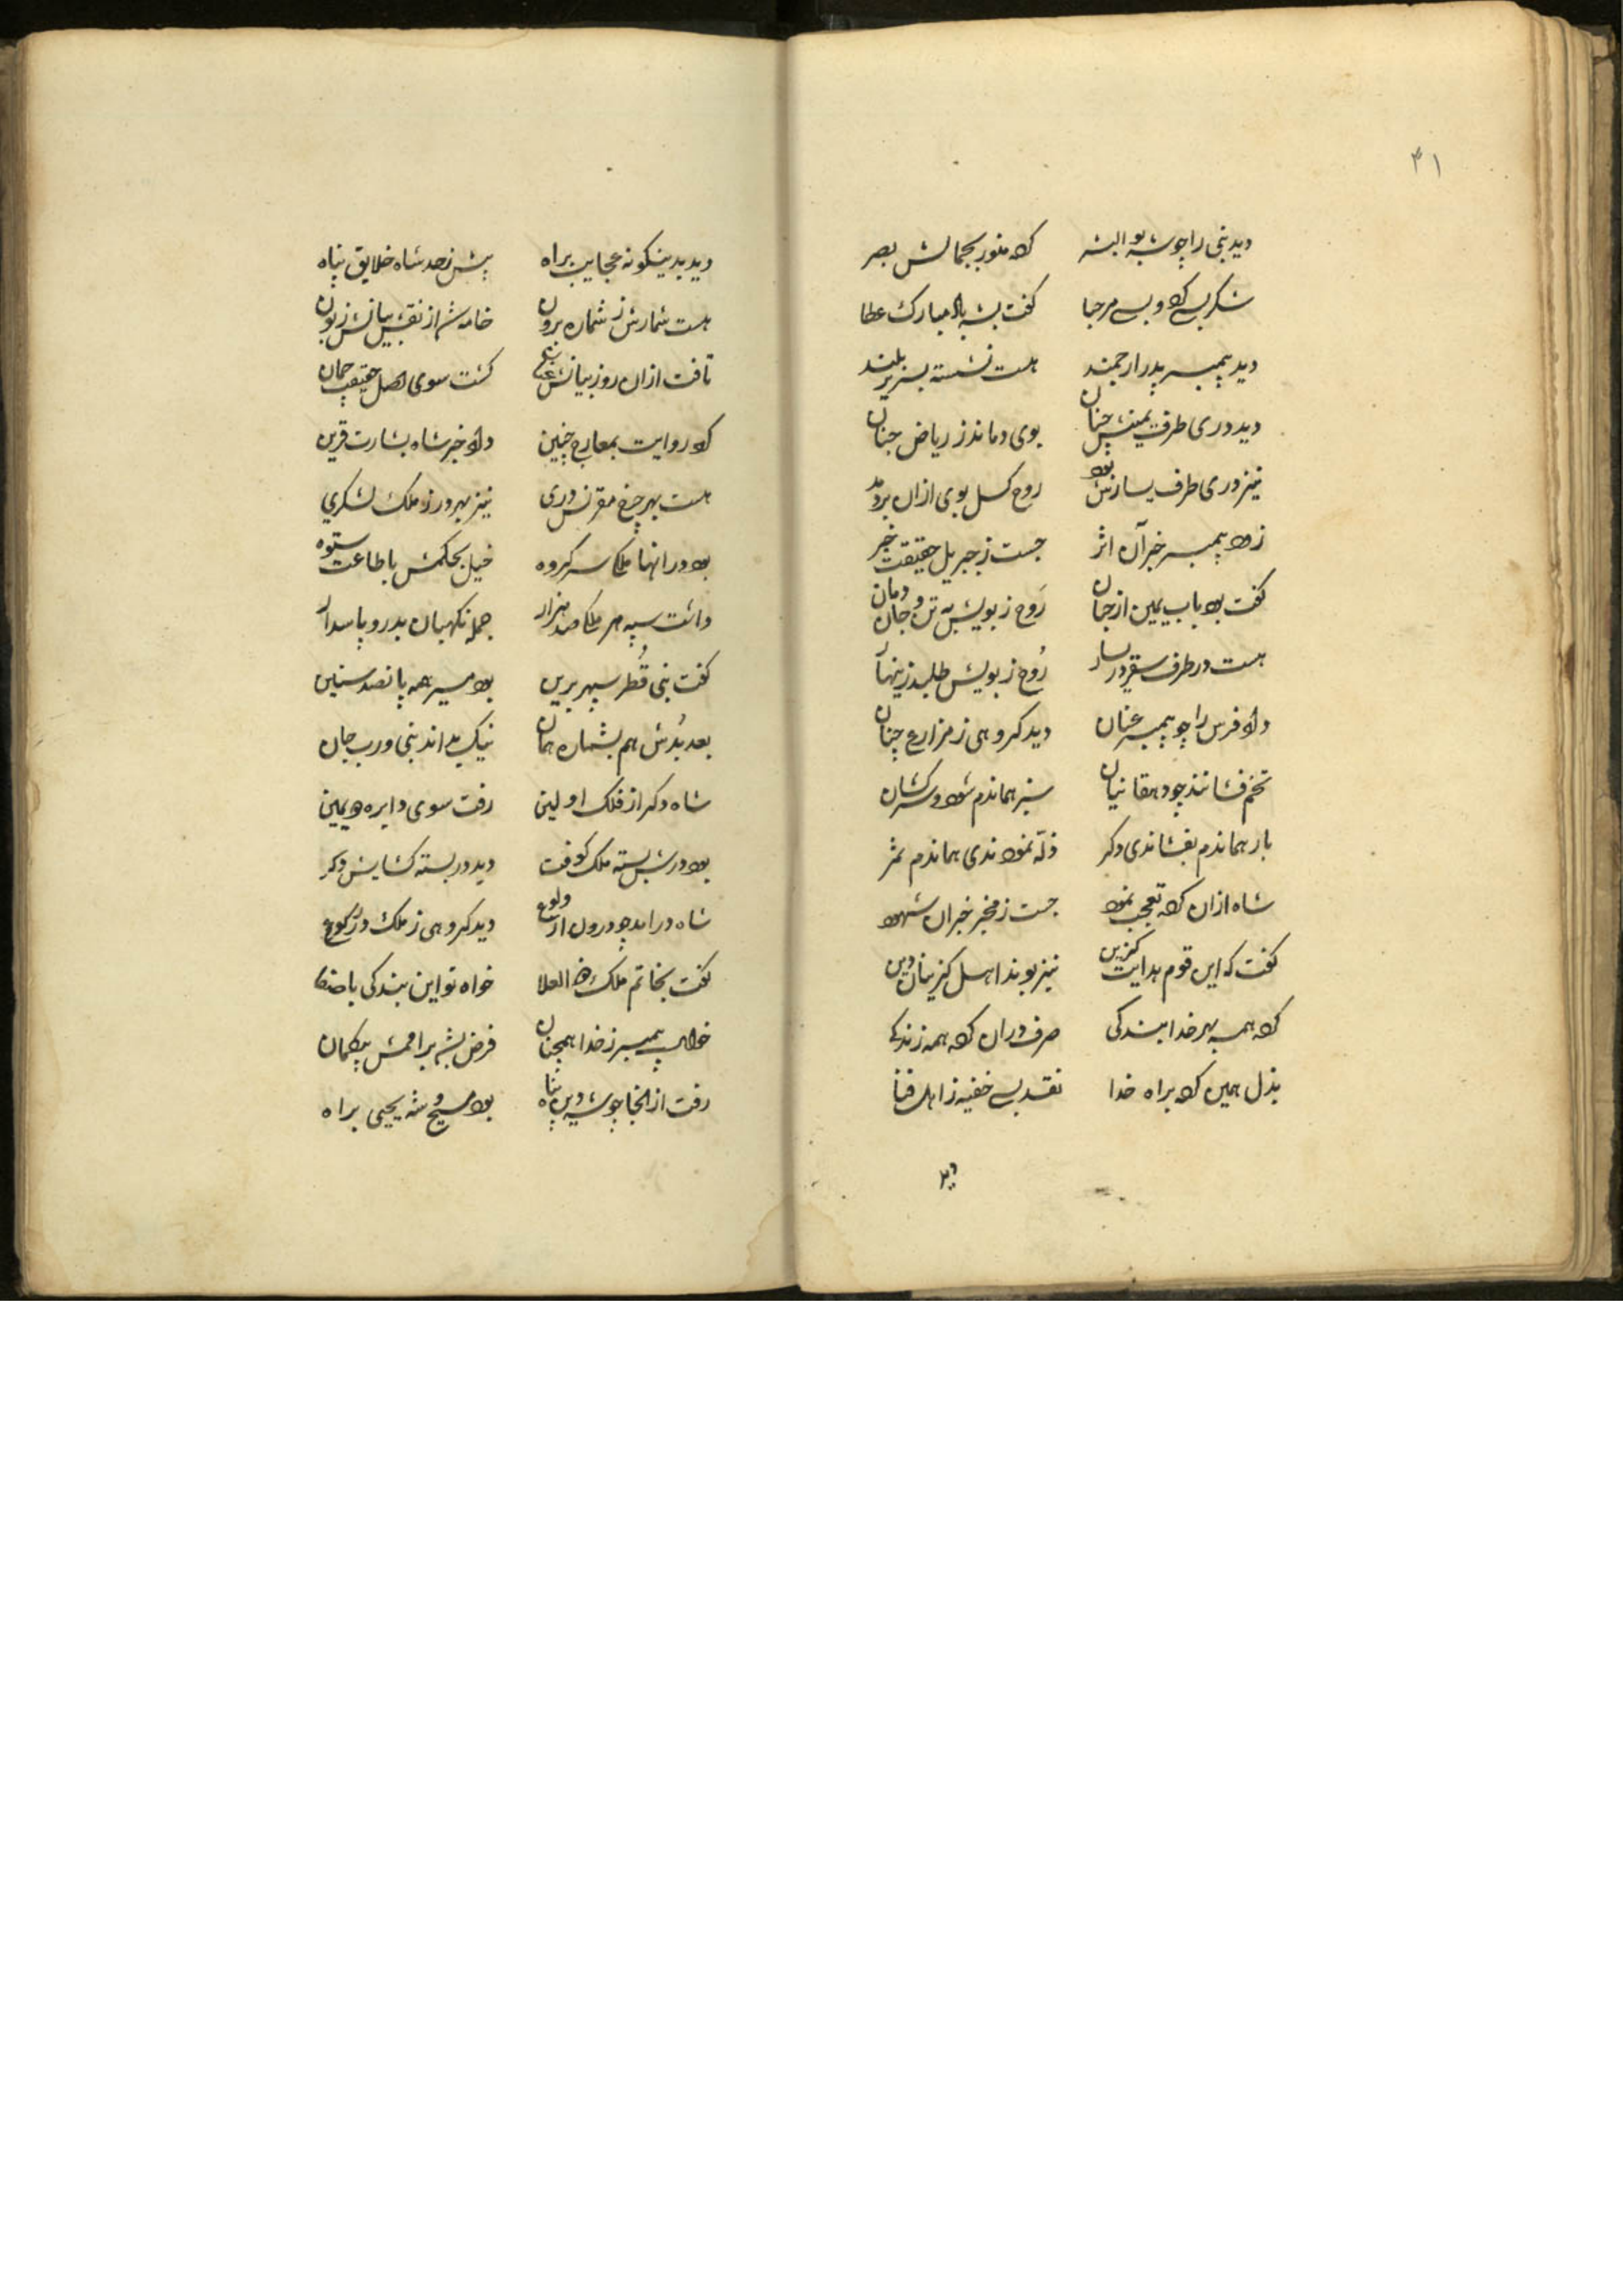 ۴۱
دید نبی را چو شه بوالبشر کرد منور بجمالش بصر
شکر بسی کرد و بسی مرحبا گفت بشه باد مبارک عطا
دید پیمبر پدر ارجمند هست نشسته بسریر بلند
دید دری طرف یمینش چنان بوی دماند ز ریاض جنان
نیز دری طرف یسارش بود روح کسل بوی ازان بردمد
زود پیمبر خبر آن اثر جست ز جبریل حقیقت خبر
گفت بود باب یمین از جنان رَوح ز بویش به تن و جان دمان
هست در طرف سقر در یسار رُوح ز بویش طلبد زینهار
داد فرس را چو پیمبر عنان دید گروهی ز مزارع چنان
تخم فشانند چو دهقانیان سبز هماندم شود و سرکشان
بار هماندم بفشاندی دگر غله نمودندی هماندم ثمر
شاه ازان کرد تعجب نمود جست ز مخبر خبر آن شهود
گفت که این قوم هدایت گزین نیز بوند اهل گزینان دین
کرد همه بهر خدا بندگی صرف دران کرد همه زندگی
بذل همین کرد براه خدا نقد بسی خفیه ز اهل فنا
دید
دید بدینگونه عجایب براه پیش ز حد شاه خلایق پناه
هست شمارش ز شماره برون خامه شد از نقش بیانش زبون
تافت ازان روز بیانش عنان گشت سوی اصل حقیقت چمان
کرد روایت بمعارج چنین داد خبر شاه بشارت قرین
هست بهر چرخ مقرنس دری نیز بهر در ز ملک لشکری
بود در انها ملکی سرگروه خیل بحکمش باطاعت ستوه
داشت سپه هر ملکی صد هزار جمله نگهبان بدر و پاسدار
گفت نبی قُطر سپهر برین بود مسیر همه پانصد سنین
بعد بُدش هم بشماره همان نیک بداند نبی و رب جان
شاه دگر از فلک اولین رفت سوی دایره دویمین
بود درش بسته ملک کوفت دید در بسته گشایش دگر
شاه درامد چو درون از ولوع دید گروهی ز ملک در رکوع
گفت بخاتم ملک ذو العلا خواه تو این بندگی با صفا
خواست پیمبر ز خدا همچنان فرض بشد بر امتش بیگمان
رفت از انجا چو شه دین پناه بود مسیح و شه یحیی براه